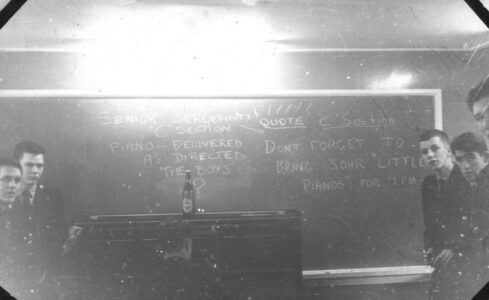 SENIOR SERGEANT
C SECTION
PIANO - DELIVERED
AS DIRECTED
THE BOYS
?
QUOTE C Section
DON'T FORGET TO
BRING YOUR LITTLE
PIANOS FOR 1 PM